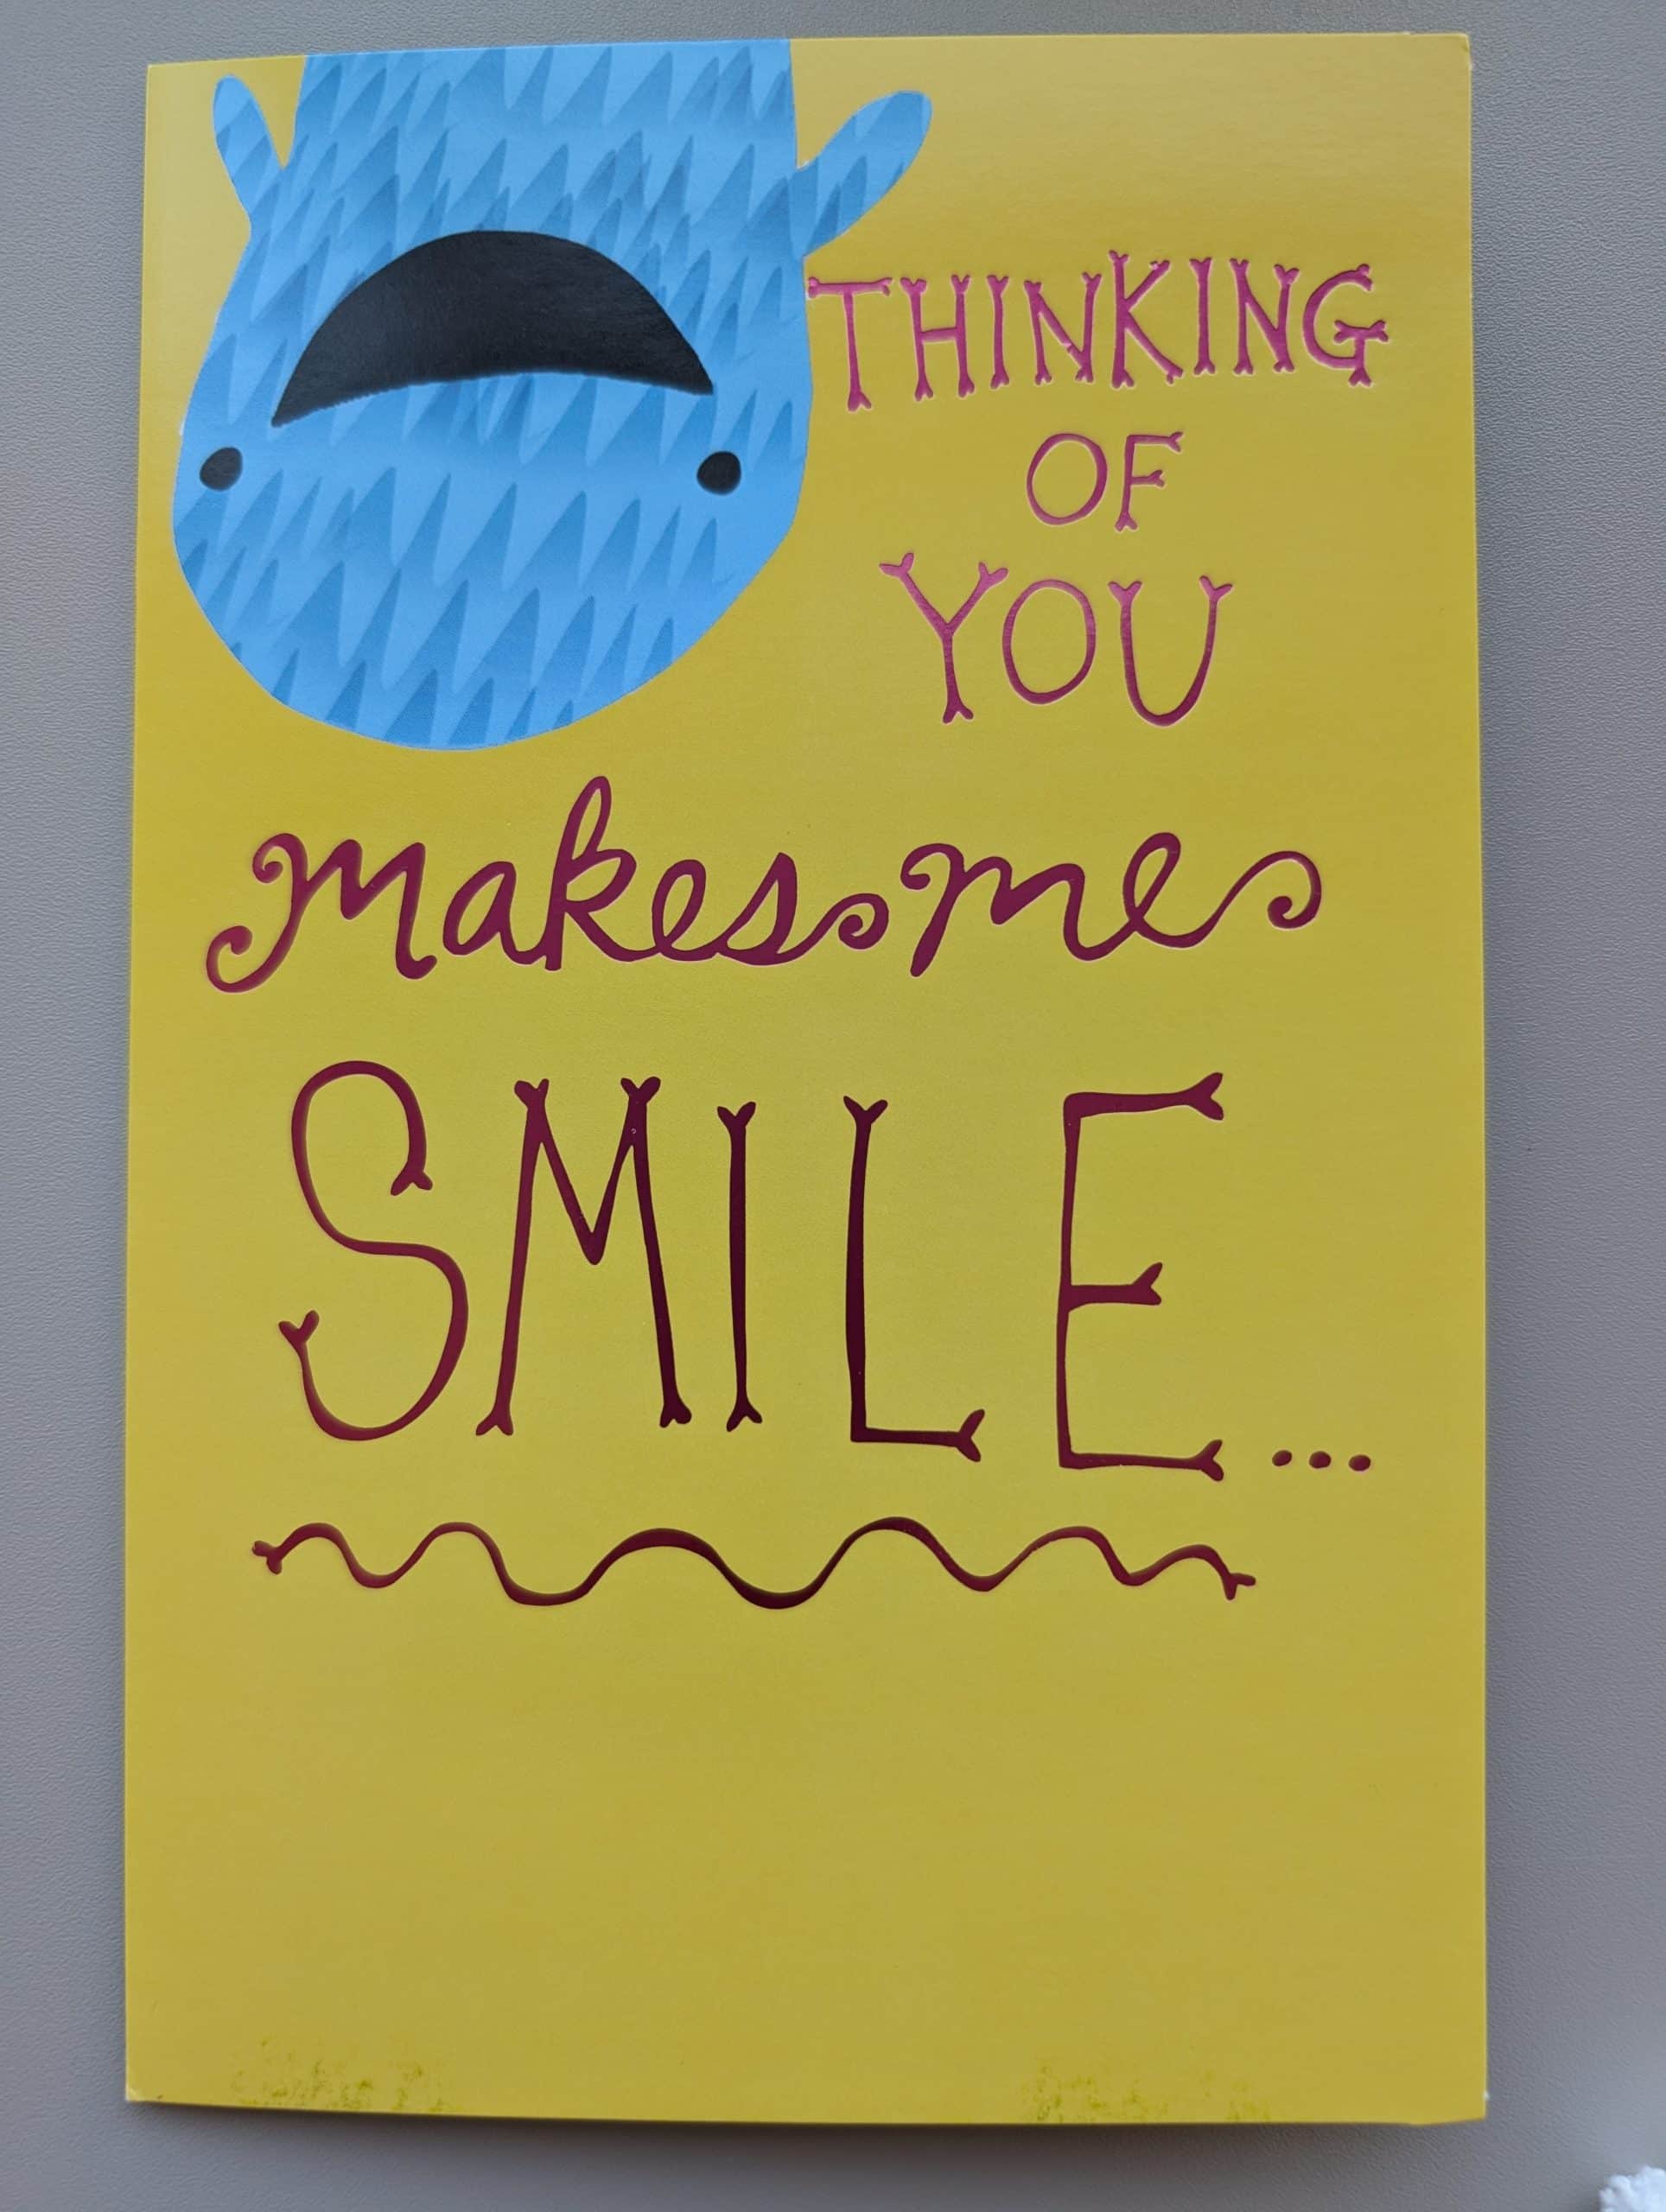 THINKING
OF
YOU
makes me
SMILE...